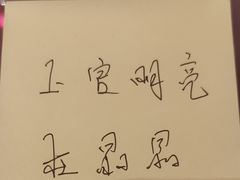 上官明亮
晶晶